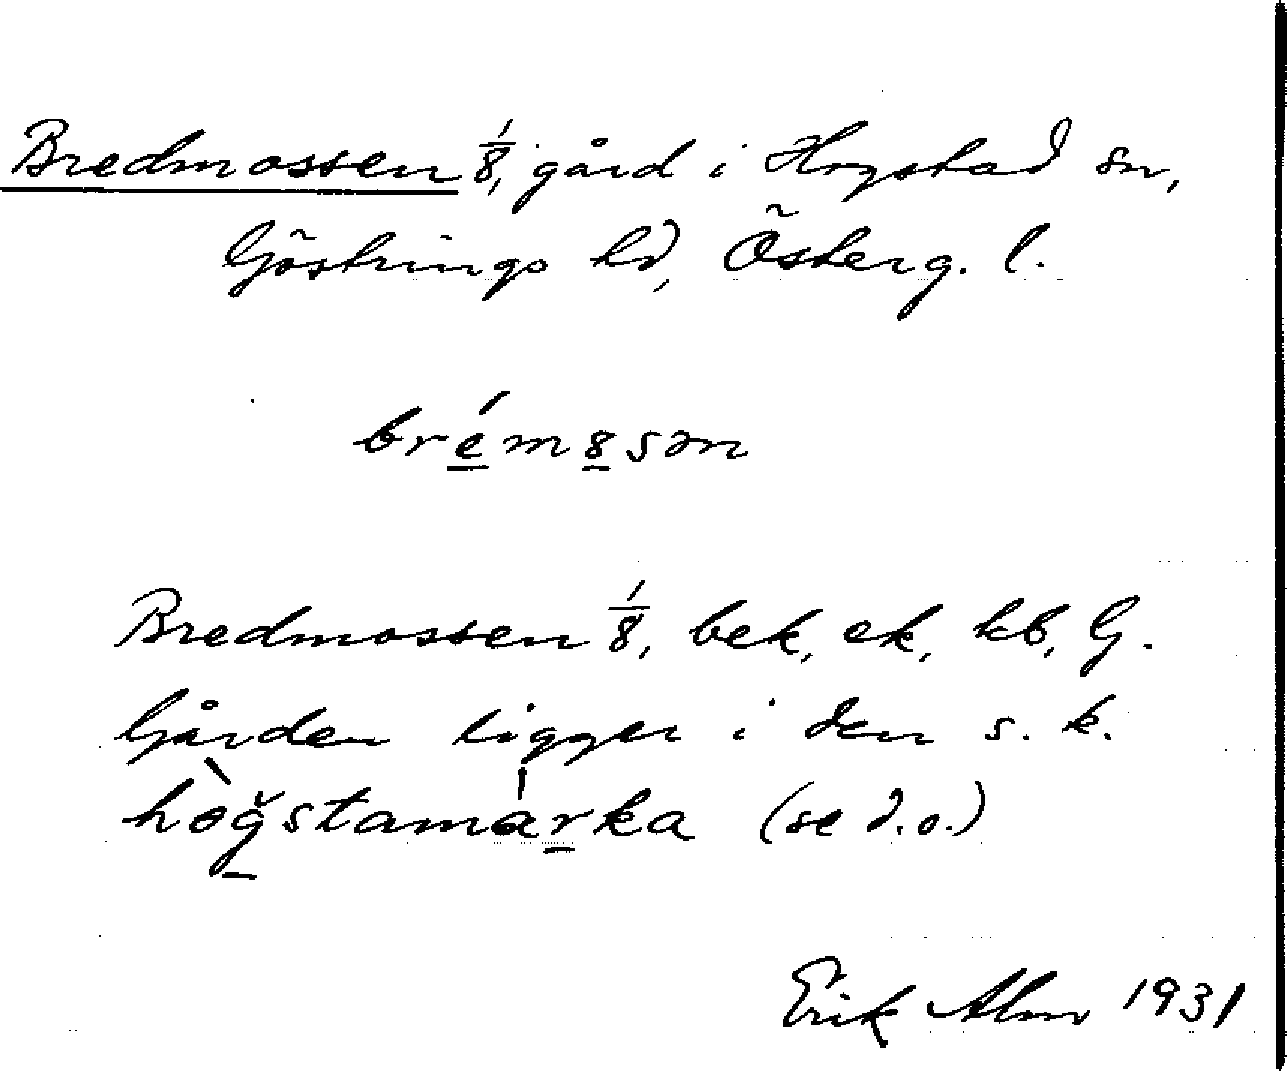 Bredmossen 1/8, gård i Hogstad sn,
Göstrings hd, Österg. l.
brém8sən
Bredmossen 1/8, bek, ek, kb, G.
Gården ligger i den s. k.
hògstamárka (se d.o.)
Erik Alm 1931